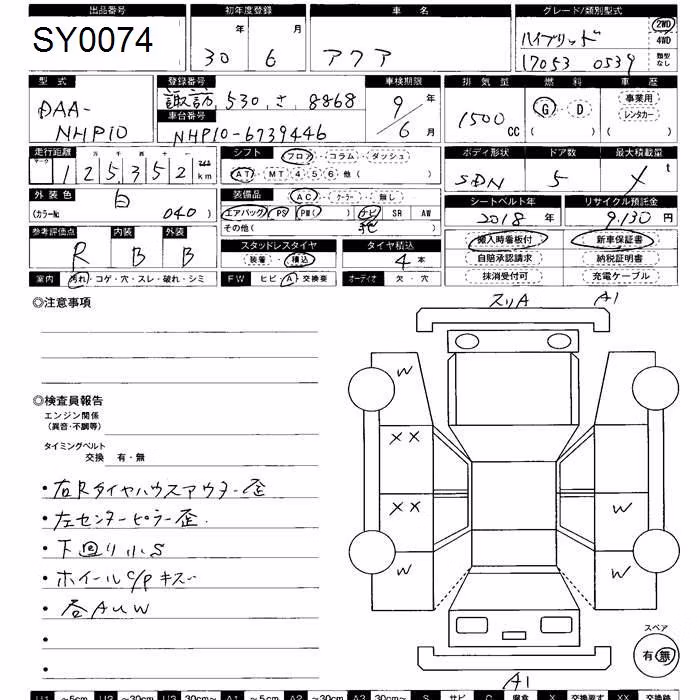 出品番号 初年度登録 車名 グレード/類別型式
SY0074 30年 6月 アクア ハイブリッド 2WD 4WD
17053 0539 類型なし
型式 登録番号 車検期限 排気量 燃料 車歴
DAA-NHP10 諏訪 530 さ 8868 9年 1500CC G・D 事業用
車台番号 レンタカー
NHP10-6739446 6月
走行距離 シフト フロア・コラム・ダッシュ ボディ形状 ドア数 最大積載量
125352 km AT・MT 4 5 6 他( ) SDN 5 t
外装色 装備品 AC・クーラー・無し シートベルト年 リサイクル預託金
白 エアバック PS PW( ) ナビ SR AW 2018年 9,130円
(カラーNo. 040) その他( )
参考評価点 内装 外装 スタッドレスタイヤ タイヤ積込 搬入時看板付 新車保証書
R B B 装着・積込 4本 自賠承認請求 納税証明書
室内 汚れ・コゲ・穴・スレ・破れ・シミ FW ヒビ・A・交換要 オーディオ 欠・穴 抹消受付可 充電ケーブル
◎注意事項
スリA A1
◎検査員報告
エンジン関係
(異音・不調等)
タイミングベルト
交換 有・無
・右Rタイヤハウスアウター歪
・左センターピラー歪.
・下回り小S
・ホイールC/Pキズ
・各AUW
W
XX
XX
W
W
W
A1
スペア
有・無
U1 ~5cm U2 ~30cm U3 30cm~ A1 ~5cm A2 ~30cm A3 30cm~ S サビ C 腐食 X 交換要す XX 交換跡